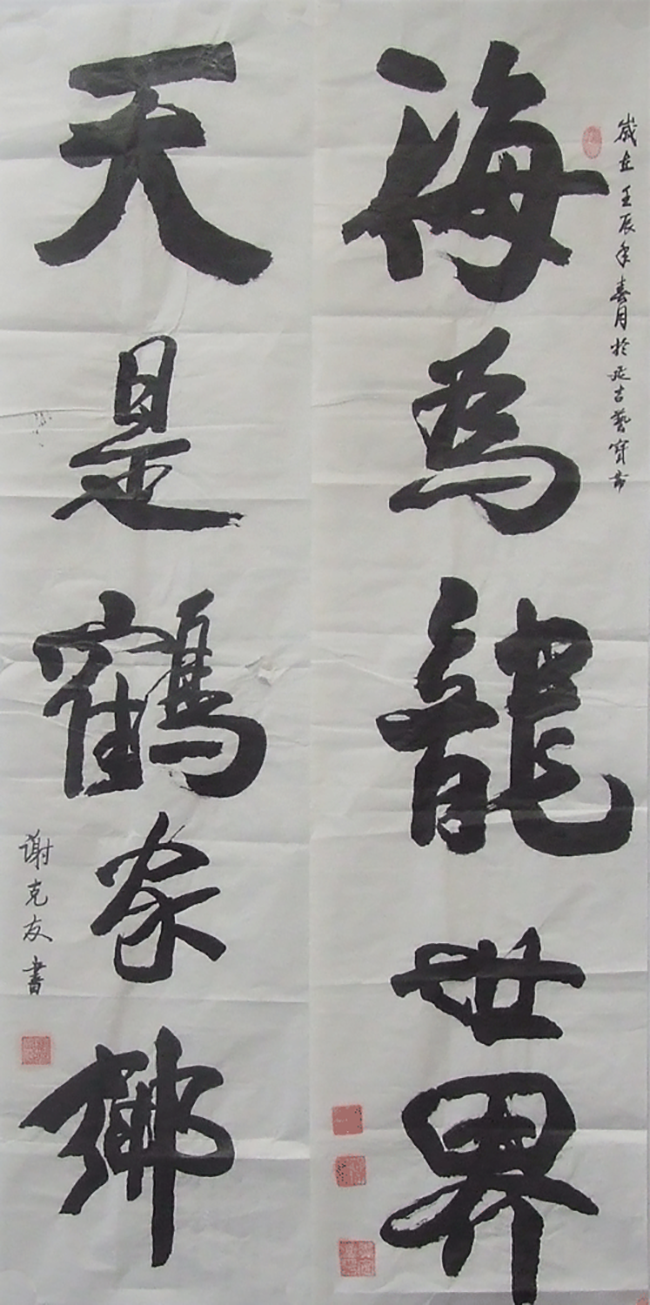 歲在壬辰年春月於延古藝寶齋
海為龍世界
天是鶴家鄉
謝克友書